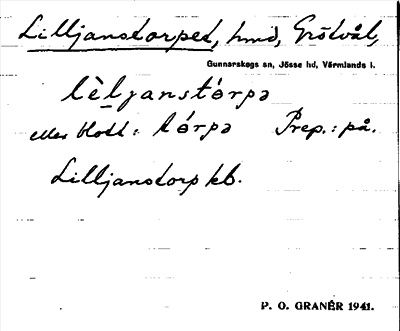 Lilljanstorpet, hmd, Grötvål,
Gunnarskogs sn, Jösse hd, Värmlands l.
lèljanstórpə
eller blott: tórpə Prep.: på.
Lilljanstorp kb.
P. O. GRANÉR 1941.